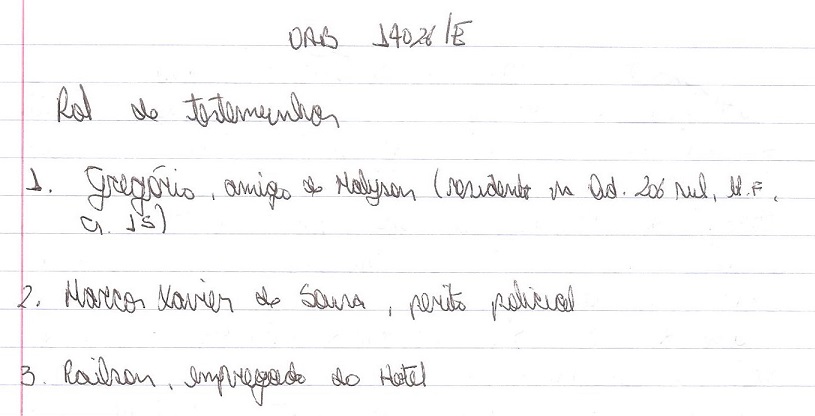 OAB 14026/E
Rol de testemunhas
1. Gregório, amigo de Halyson (residente na Qd. 206 sul, H.F,
cj. 15)
2. Marcos Xavier de Sousa, perito policial
3. Railson, empregado do Hotel